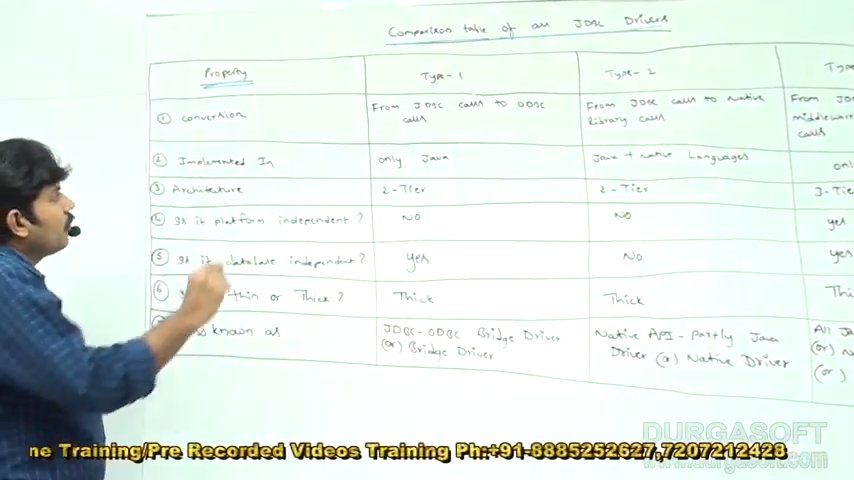 Comparison table of all JDBC Drivers
Property
Type-1
Type-2
① conversion
From JDBC calls to ODBC
calls
From JDBC calls to Native
library calls
From
middleware
calls
② Implemented In
only Java
Java + Native Languages
③ Architecture
2-Tier
2-Tier
3-Tie
④ Is it platform independent?
No
No
yes
⑤ Is it database independent?
yes
No
yes
⑥ thin or Thick?
Thick
Thick
Thi
known as
JDBC-ODBC Bridge Driver
(or) Bridge Driver
Native API-Partly Java
Driver (or) Native Driver
All
(or)
(or)
DURGASOFT
www.durgasoft.com
ne Training/Pre Recorded Videos Training Ph:+91-8885252627,7207212428